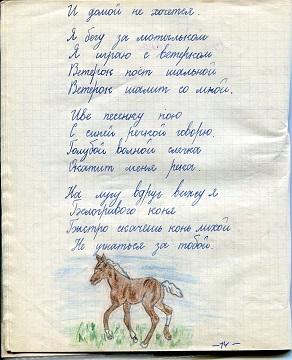 И домой не хочется.
Я бегу за мотыльком
Я играю с ветерком
Ветерок поёт шальной
Ветерок шалит со мной.
Иве песенку пою
С синей речкой говорю.
Голубой волной слегка
Окатит меня река.
На лугу вдруг вижу я
Белогривого коня
Быстро скачешь конь лихой
Не угнаться за тобой.
-14-